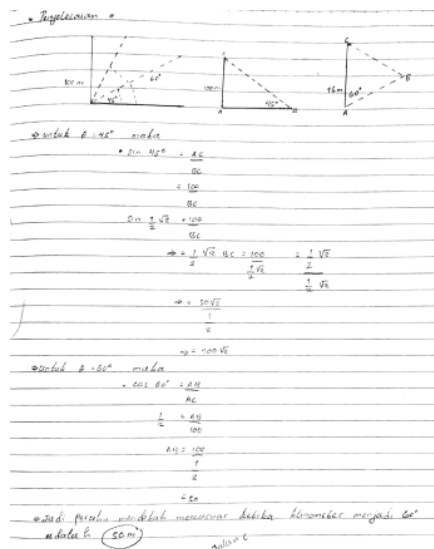 • Penyelesaian •
100 m
60°
45°
C
100 m
45°
A
B
C
76 m
60°
B
A
⇒ untuk θ = 45° maka
• Sin 45° = AC
BC
= 100
BC
Sin 1/2 √2 = 100
BC
⇒ = 1/2 √2 BC = 100 / 1/2 √2 = 1/2 √2 / 1/2 √2
⇒ = 50√2
1
2
⇒ = 100 √2
⇒ untuk θ = 60° maka
• cos 60° = AB
AC
1/2 = AB
100
AB = 100
1
2
= 50
⇒ Jadi perahu mendekati mercusuar ketika klinometer menjadi 60°
adalah 50 m